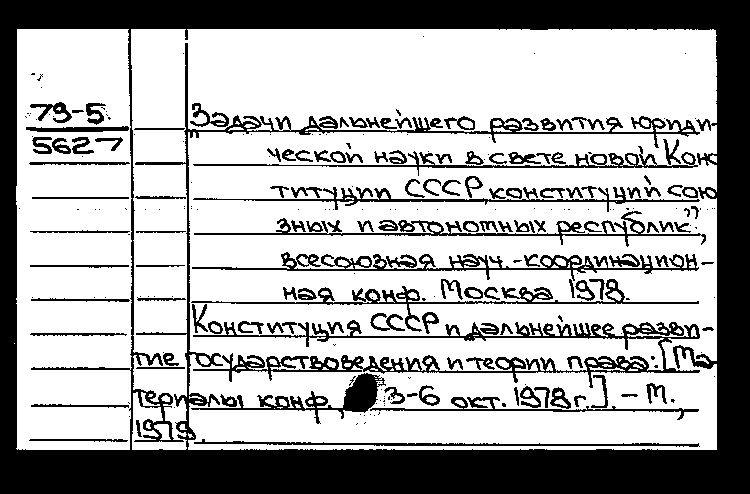 79-5
5627
"Задачи дальнейшего развития юриди-
ческой науки в свете новой Конс
титуции СССР, конституций сою
зных и автономных республик",
всесоюзная науч.-координацион-
ная конф. Москва. 1978.
Конституция СССР и дальнейшее разви-
тие государствоведения и теории права: [Ма-
териалы конф., 3-6 окт. 1978 г.]. - М.,
1979.